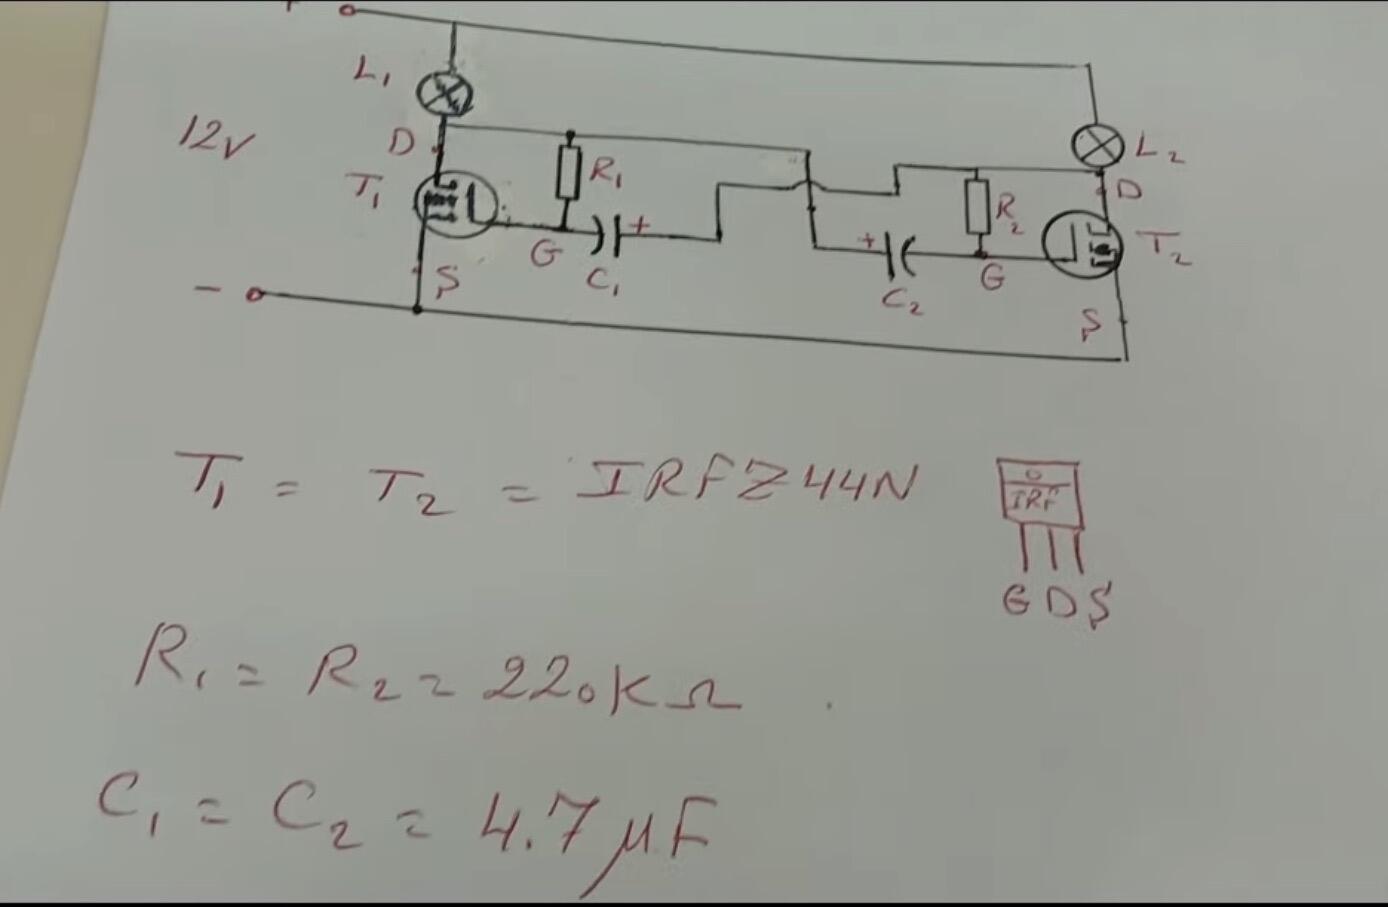 +
L1
12V
D
T1
R1
G
+
C1
S
-
+
C2
R2
G
L2
D
T2
S
T1 = T2 = IRFZ44N
IRF
G D S
R1 = R2 = 220KΩ .
C1 = C2 = 4.7 μF